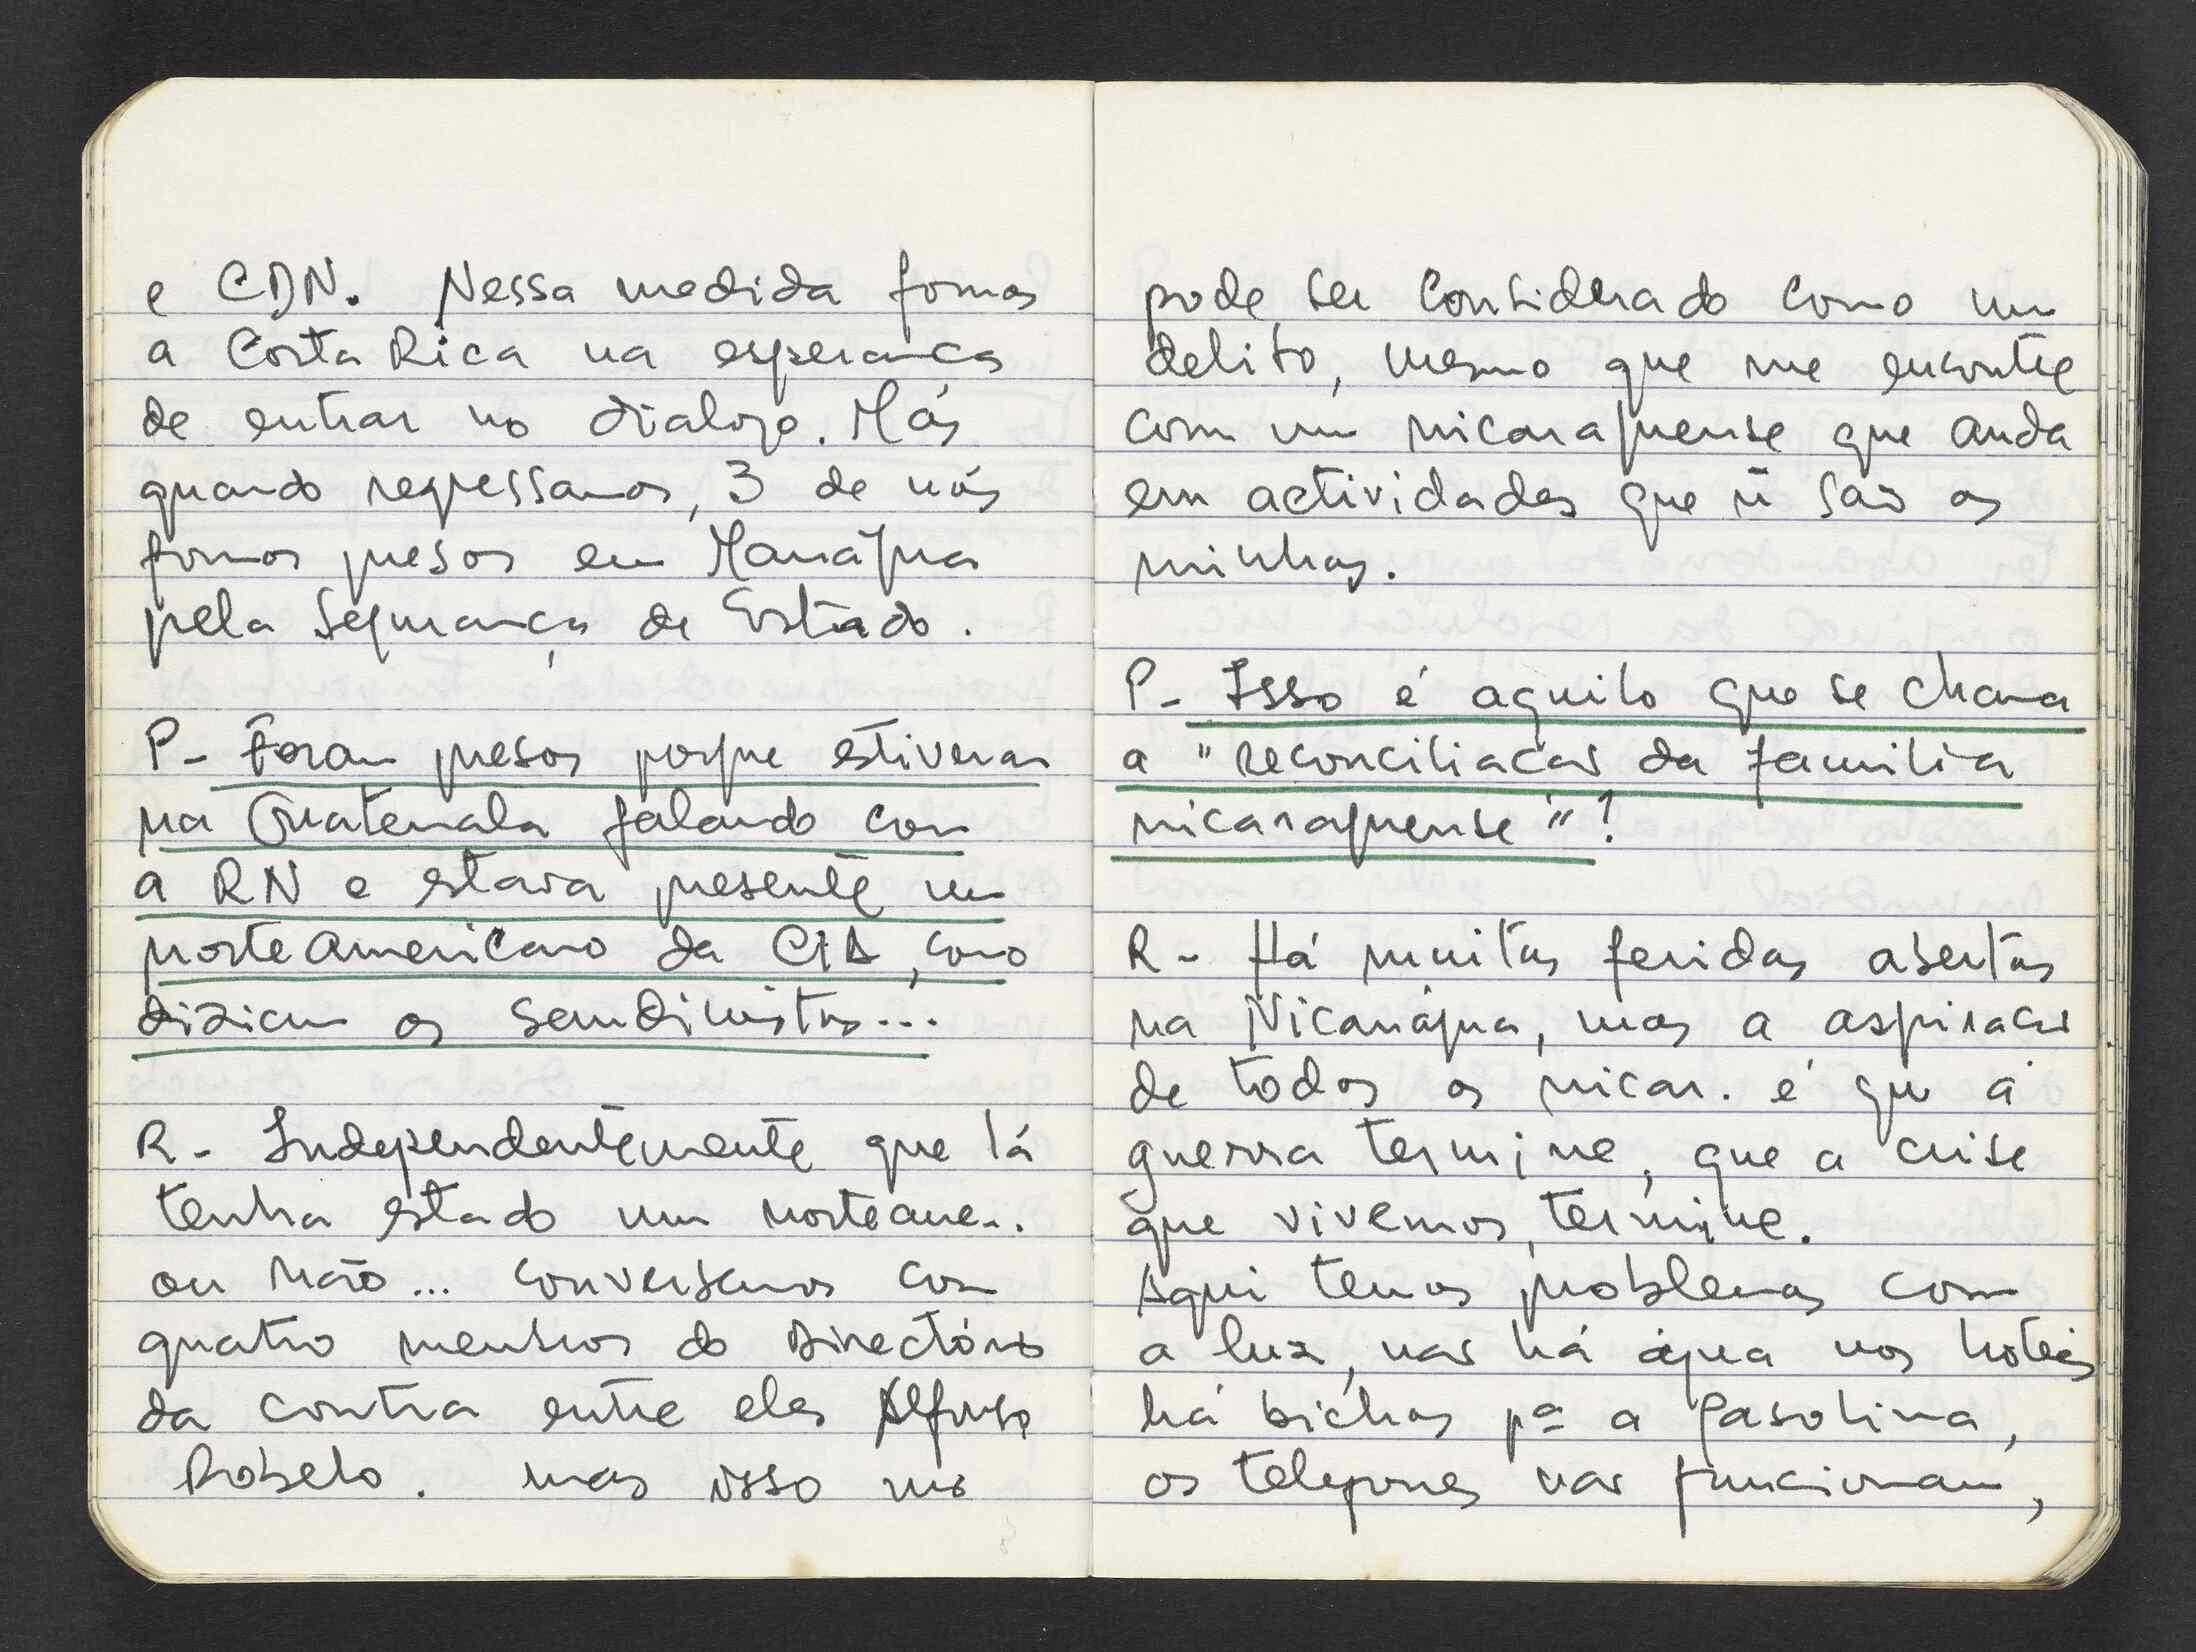 e CDN. Nessa medida fomos
a Costa Rica na esperança
de entrar no dialogo. Más
quando regressamos, 3 de nós
fomos presos em Manágua
pela Segurança de Estado.
P- Foram presos porque estiveram
na Guatemala falando com
a RN e estava presente um
norteamericano da CIA, como
diziam os sandinistas...
R- Independentemente que lá
tenha estado um norteame...
ou não... conversamos com
quatro membros do Directório
da contra entre eles Alfonso
Robelo. mas isso não
pode ser considerado como um
delito, mesmo que me encontre
com um nicaraguense que anda
em actividades que ñ são as
minhas.
P- Isso é aquilo que se chama
a "reconciliacão da familia
nicaraguense"?
R- Há muitas feridas abertas
na Nicarágua, mas a aspiracão
de todos os nicar. é que a
guerra termine, que a crise
que vivemos, termine.
Aqui temos problemas com
a luz, não há água nos hoteis
há bichas pª a gasolina,
os telefones não funcionam,